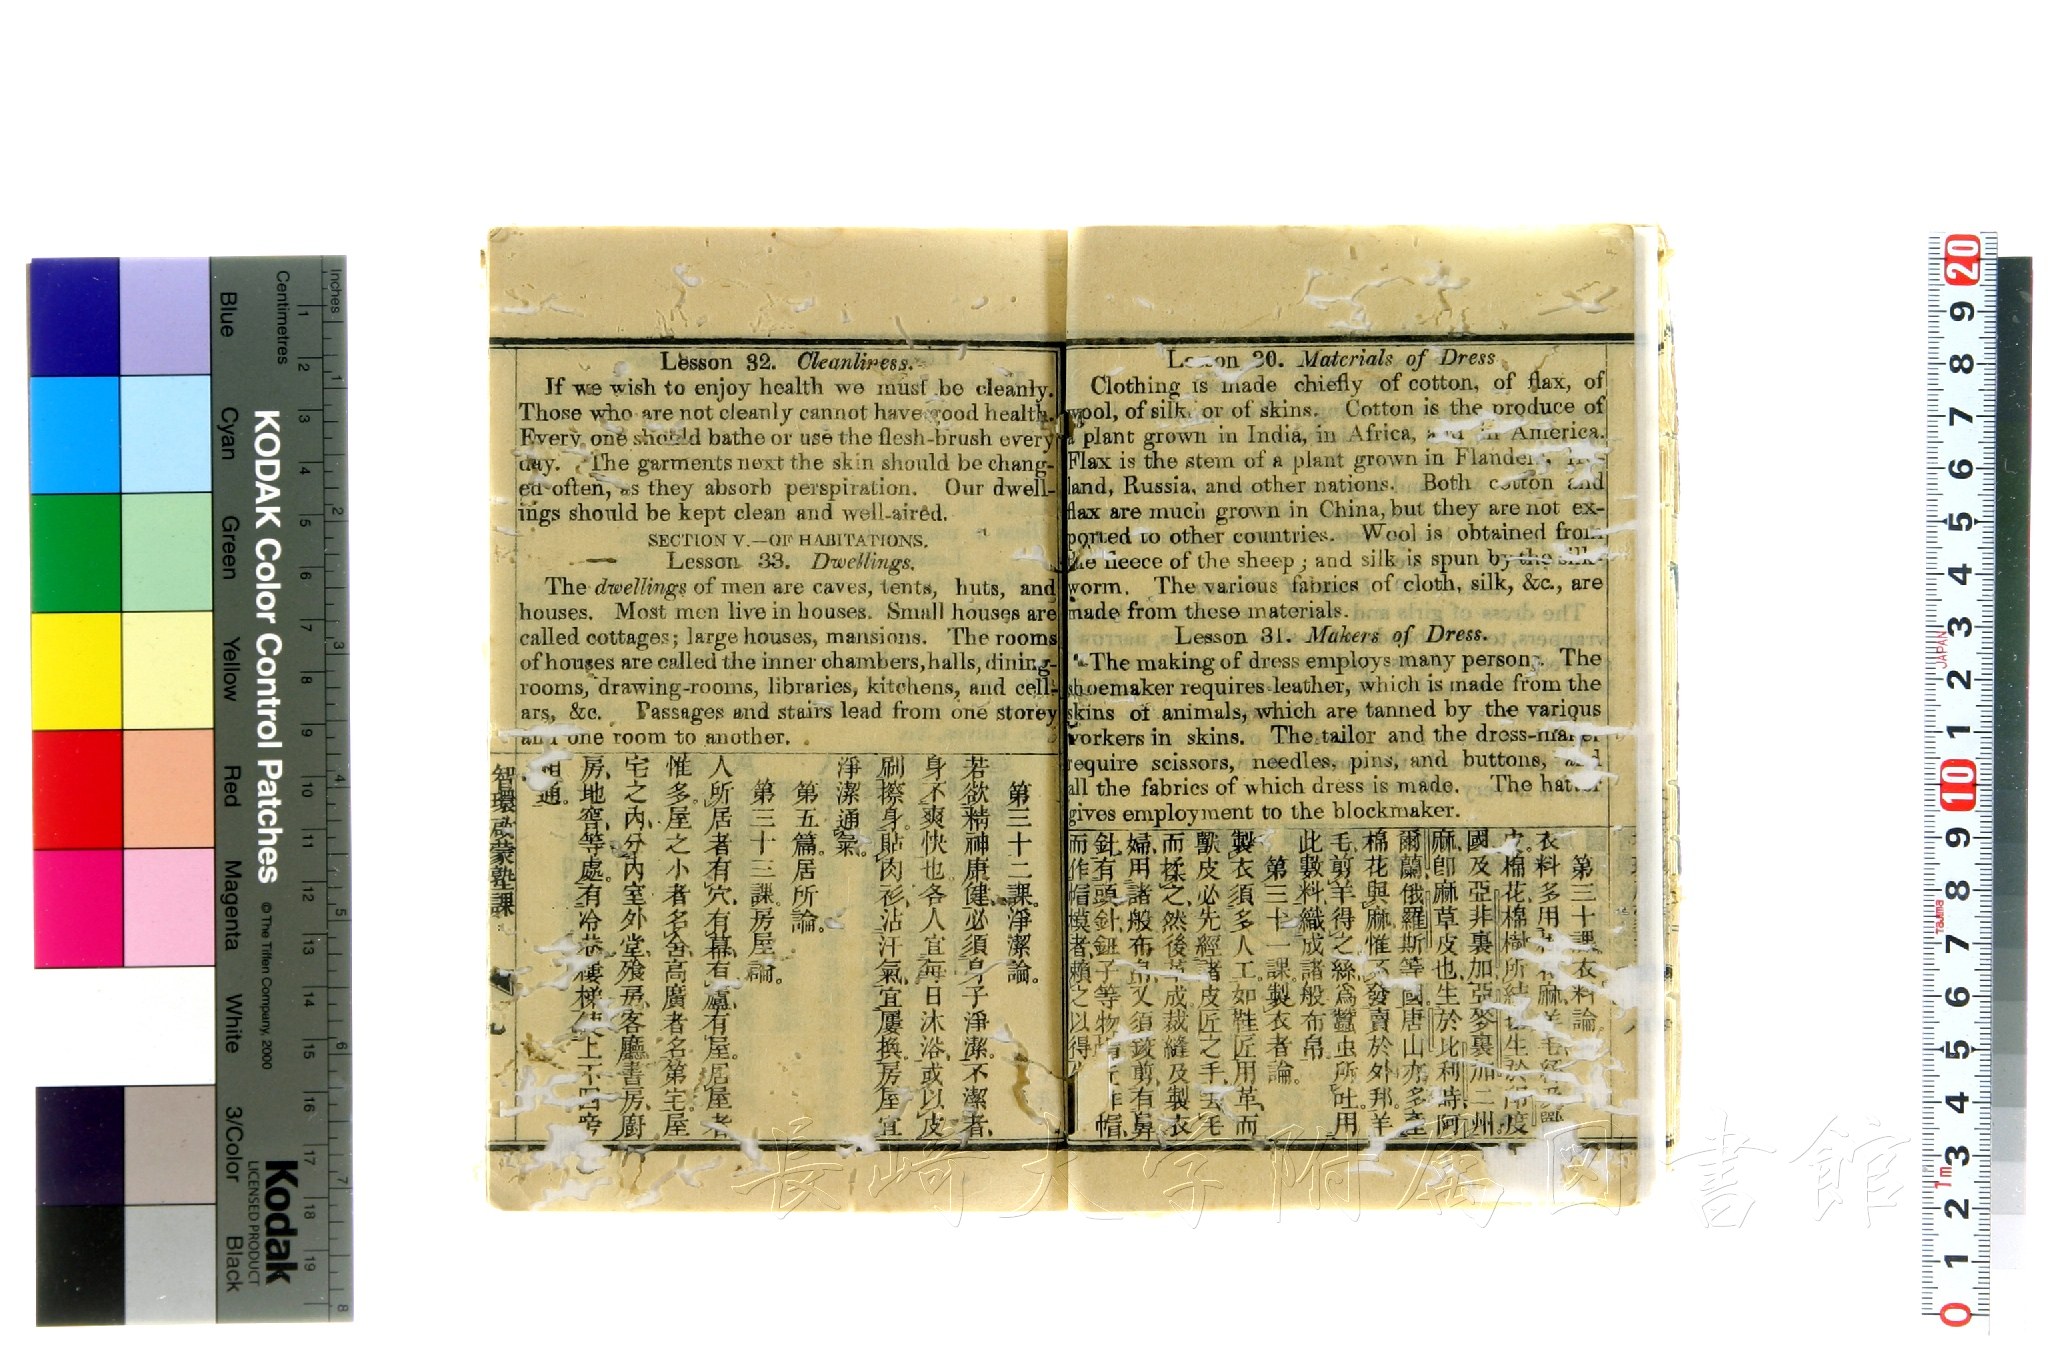 Lesson 30. Materials of Dress
Clothing is made chiefly of cotton, of flax, of
wool, of silk or of skins. Cotton is the produce of
a plant grown in India, in Africa, and in America.
Flax is the stem of a plant grown in Flanders,
land, Russia, and other nations. Both cotton and
flax are much grown in China, but they are not ex-
ported to other countries. Wool is obtained from
the fleece of the sheep; and silk is spun by the silk-
worm. The various fabrics of cloth, silk, &c., are
made from these materials.
Lesson 31. Makers of Dress.
The making of dress employs many persons. The
shoemaker requires leather, which is made from the
skins of animals, which are tanned by the various
workers in skins. The tailor and the dress-maker
require scissors, needles, pins, and buttons, and
all the fabrics of which dress is made. The hatter
gives employment to the blockmaker.
第三十課衣料論。
衣料多用
棉花棉樹所結生於印度
國及亞非裏加亞麥裏加二州
麻卽麻草皮也、生於比利時、阿
爾蘭、俄羅斯等國。唐山亦多產
棉花與麻惟不發賣於外邦。羊
毛、剪羊得之、絲爲蠶虫所吐、用
此數料、織成諸般布帛。
第三十一課。製衣者論。
製衣須多人工、如鞋匠用革、而
獸皮必先經諸皮匠之手、去毛
而揉之、然後革成。裁縫及製衣
婦、用諸般布帛、又須鉸剪、有鼻
針、有頭針、鈕子等物、帽、
而作帽模者、賴之以得
Lesson 32. Cleanliness.
If we wish to enjoy health we must be cleanly.
Those who are not cleanly cannot have good health.
Every one should bathe or use the flesh-brush every
day. The garments next the skin should be chang-
ed often, as they absorb perspiration. Our dwell-
ings should be kept clean and well-aired.
SECTION V.—OF HABITATIONS.
Lesson 33. Dwellings.
The dwellings of men are caves, tents, huts, and
houses. Most men live in houses. Small houses are
called cottages; large houses, mansions. The rooms
of houses are called the inner chambers, halls, dining-
rooms, drawing-rooms, libraries, kitchens, and cell-
ars, &c. Passages and stairs lead from one storey
and one room to another.
第三十二課。淨潔論。
若欲精神康健、必須身子淨潔。不潔者、
身不爽快也。各人宜每日沐浴、或以皮
刷擦身。貼肉衫、沾汗氣、宜屢換。房屋宜
淨潔通氣。
第五篇。居所論。
第三十三課。房屋論。
人所居者有穴、有幕、有廬、有屋。居屋者
惟多。屋之小者名舍、高廣者名第宅。屋
宅之內、分內室、外堂、飱房、客廳、書房、廚
房、地窖等處。有冷巷樓梯、使上下四旁
相通。
智環啟蒙塾課
長崎大学附属図書館
KODAK Color Control Patches
© The Tiffen Company, 2000
Kodak
LICENSED PRODUCT
Inches
Centimetres
Blue
Cyan
Green
Yellow
Red
Magenta
White
3/Color
Black
1 2 3 4 5 6 7 8 9 10 11 12 13 14 15 16 17 18 19
1 2 3 4 5 6 7 8
20 9 8 7 6 5 4 3 2 1 10 9 8 7 6 5 4 3 2 1 0
JAPAN
Tajima
1m